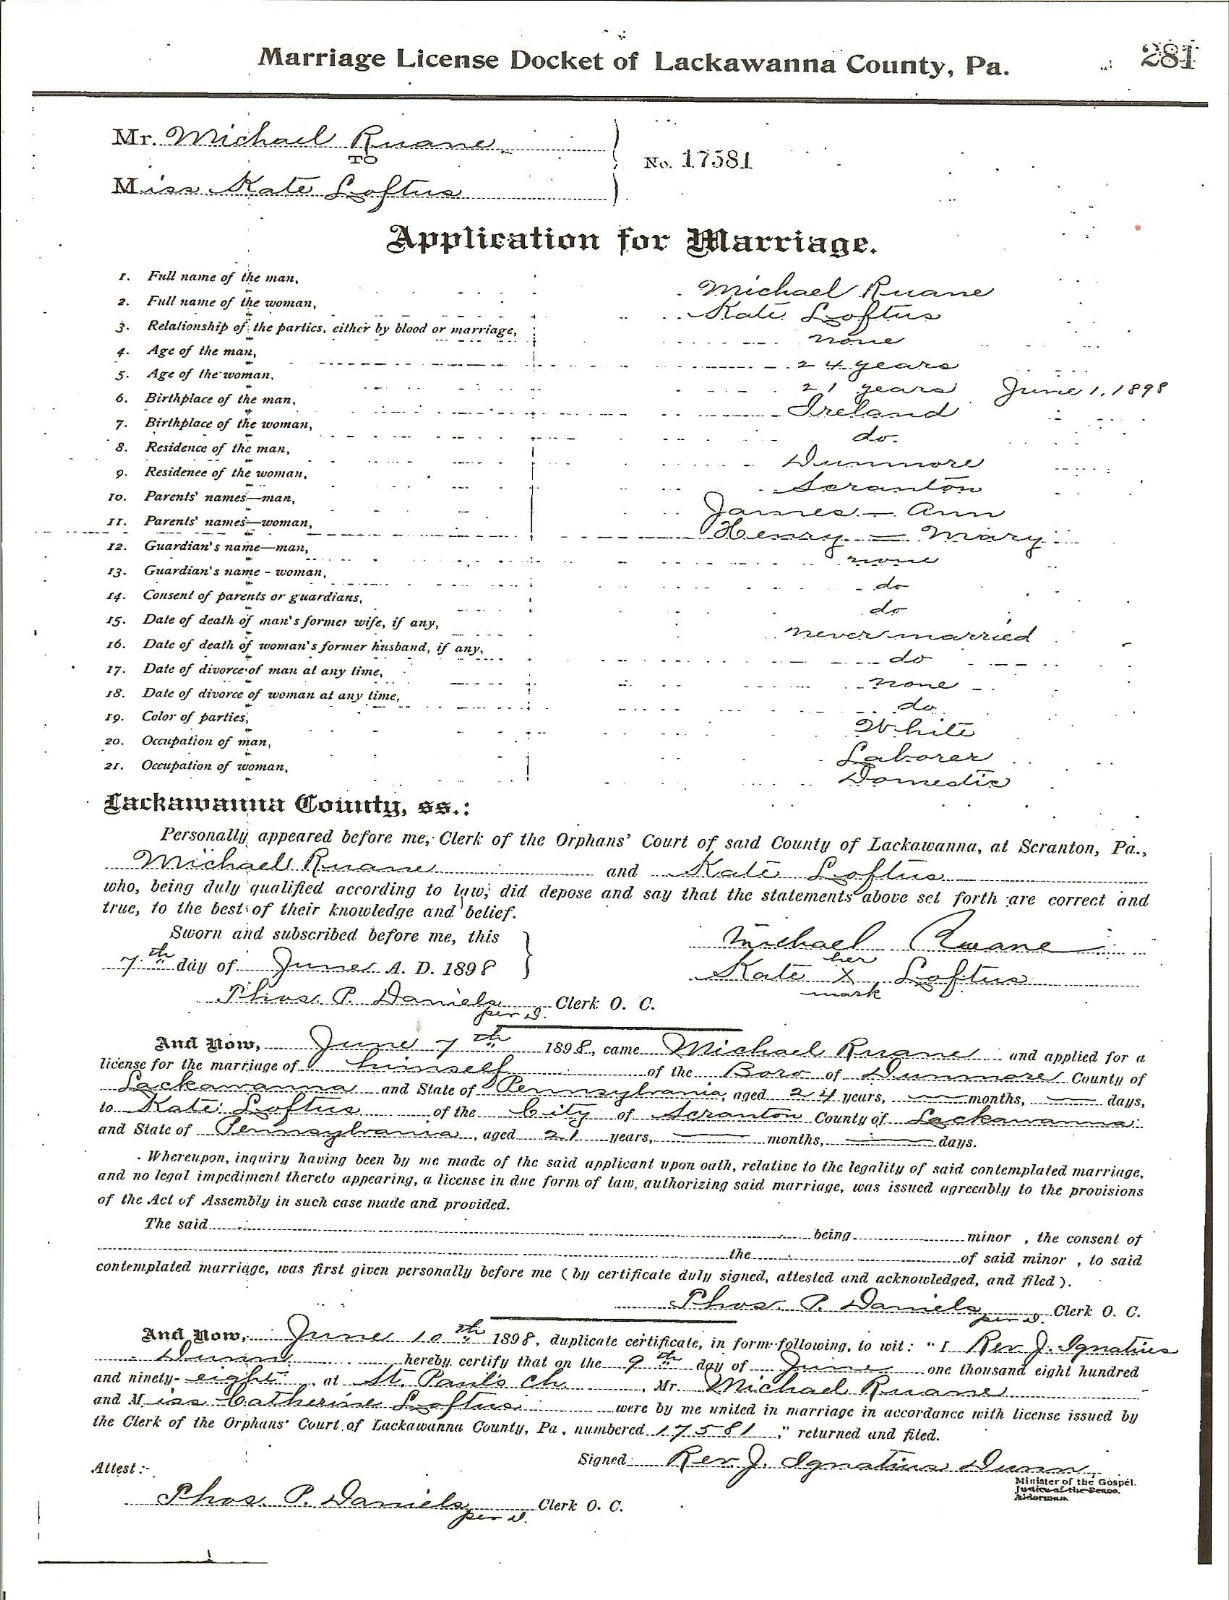 Marriage License Docket of Lackawanna County, Pa. 281
Mr. Michael Ruane
TO
No. 17581
Miss Kate Loftus
Application for Marriage.
1. Full name of the man, Michael Ruane
2. Full name of the woman, Kate Loftus
3. Relationship of the parties, either by blood or marriage, none
4. Age of the man, 24 years
5. Age of the woman, 21 years June 1, 1898
6. Birthplace of the man, Ireland
7. Birthplace of the woman, do.
8. Residence of the man, Dunmore
9. Residence of the woman, Scranton
10. Parents' names—man, James – Ann
11. Parents' names—woman, Henry = Mary
12. Guardian's name—man, none
13. Guardian's name - woman, do
14. Consent of parents or guardians, do
15. Date of death of man's former wife, if any, never married
16. Date of death of woman's former husband, if any, do
17. Date of divorce of man at any time, none
18. Date of divorce of woman at any time, do
19. Color of parties, White
20. Occupation of man, Laborer
21. Occupation of woman, Domestic
Lackawanna County, ss.:
Personally appeared before me, Clerk of the Orphans' Court of said County of Lackawanna, at Scranton, Pa.,
Michael Ruane and Kate Loftus
who, being duly qualified according to law, did depose and say that the statements above set forth are correct and
true, to the best of their knowledge and belief.
Sworn and subscribed before me, this Michael Ruane
7th day of June A. D. 1898 Kate her X mark Loftus
Thos. P. Daniels per D. Clerk O. C.
And Now, June 7th 1898, came Michael Ruane and applied for a
license for the marriage of himself of the Boro of Dunmore County of
Lackawanna and State of Pennsylvania, aged 24 years, — months, — days,
to Kate Loftus of the City of Scranton County of Lackawanna
and State of Pennsylvania, aged 21 years, — months, — days.
Whereupon, inquiry having been by me made of the said applicant upon oath, relative to the legality of said contemplated marriage,
and no legal impediment thereto appearing, a license in due form of law, authorizing said marriage, was issued agreeably to the provisions
of the Act of Assembly in such case made and provided.
The said being minor , the consent of
the of said minor , to said
contemplated marriage, was first given personally before me (by certificate duly signed, attested and acknowledged, and filed).
Thos. P. Daniels per D. Clerk O. C.
And Now, June 10th 1898, duplicate certificate, in form following, to wit: "I Rev. J. Ignatius
Dunn hereby certify that on the 9th day of June one thousand eight hundred
and ninety-eight at St. Paul's Ch. , Mr Michael Ruane
and Miss Catherine Loftus were by me united in marriage in accordance with license issued by
the Clerk of the Orphans' Court of Lackawanna County, Pa , numbered 17581 ," returned and filed.
Signed Rev. J. Ignatius Dunn,
Minister of the Gospel.
Justice of the Peace.
Alderman.
Attest:-
Thos. P. Daniels per D. Clerk O. C.